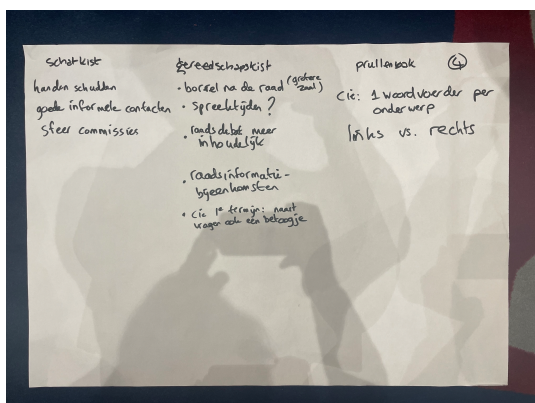 schatkist
handen schudden
goede informele contacten
sfeer commissies
gereedschapskist
• borrel na de raad (grotere zaal)
• spreektijden?
• raadsdebat meer
inhoudelijk
• raadsinformatie-
bijeenkomsten
• cie 1e termijn: naast
vragen ook een betoogje
prullenbak
4
Cie: 1 woordvoerder per
onderwerp
links vs. rechts